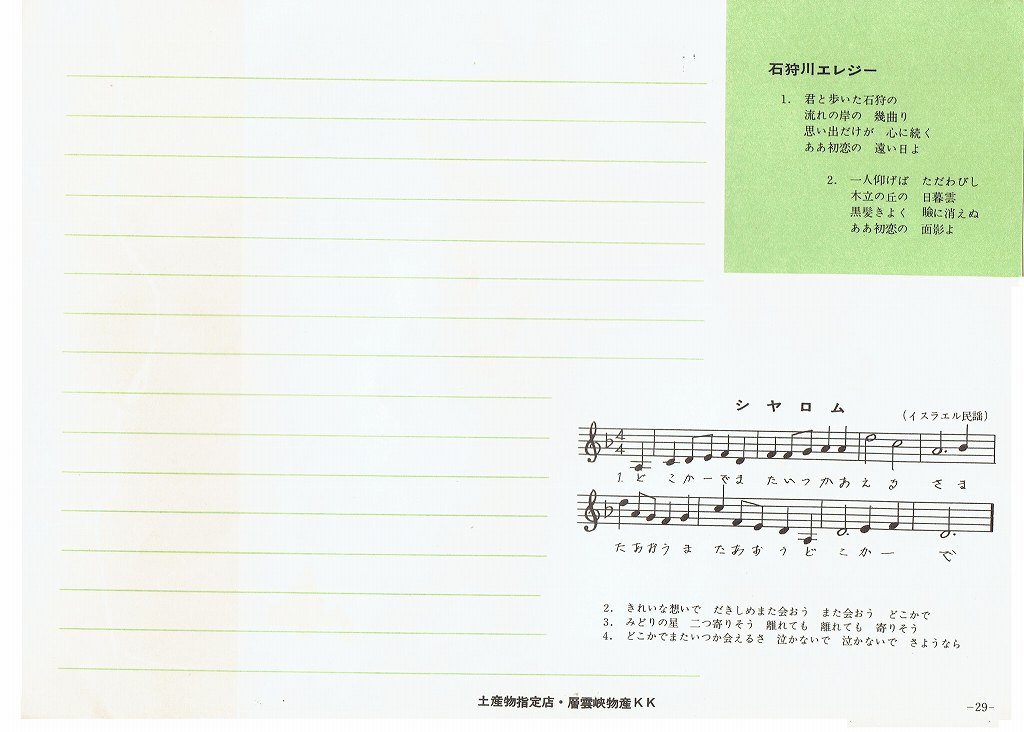 石狩川エレジー
1. 君と歩いた石狩の
流れの岸の 幾曲り
思い出だけが 心に続く
ああ初恋の 遠い日よ
2. 一人仰げば ただわびし
木立の丘の 日暮雲
黒髪きよく 瞼に消えぬ
ああ初恋の 面影よ
シヤロム
(イスラエル民謡)
1. どこかーでま たいつかあえる さま
たあおう ま たあおうど こかー で
2. きれいな想いで だきしめまた会おう また会おう どこかで
3. みどりの星 二つ寄りそう 離れても 離れても 寄りそう
4. どこかでまたいつか会えるさ 泣かないで 泣かないで さようなら
土産物指定店・層雲峡物産KK
-29-